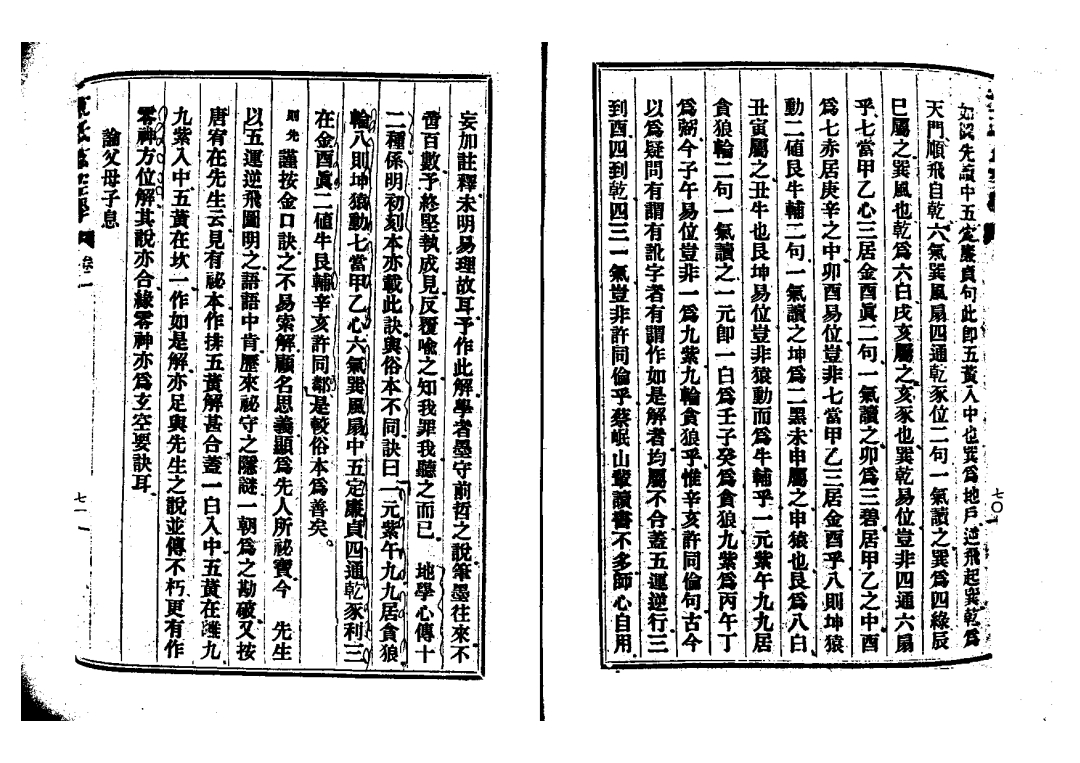 如從先讀中五定廉貞句此卽五黃入中也巽爲地戶逆飛起巽乾爲
天門順飛自乾六氣巽風扇四通乾豕位二句一氣讀之巽爲四綠辰
巳屬之巽風也乾爲六白戌亥屬之亥豕也巽乾易位豈非四通六扇
乎七當甲乙心三居金酉眞二句一氣讀之卯爲三碧居甲乙之中酉
爲七赤居庚辛之中卯酉易位豈非七當甲乙三居金酉乎八則坤猿
動二値艮牛輔二句一氣讀之坤爲二黑未申屬之申猿也艮爲八白
丑寅屬之丑牛也艮坤易位豈非猿動而爲牛輔乎一元紫午九九居
貪狼輪二句一氣讀之一元卽一白爲壬子癸爲貪狼九紫爲丙午丁
爲弼今子午易位豈非一爲九紫九輪貪狼乎惟辛亥許同倫句古今
以爲疑問有謂有訛字者有謂作如是解者均屬不合蓋五運逆行三
到酉四到乾四三一氣豈非許同倫乎蔡岷山輩讀書不多師心自用
七〇
妄加註釋未明易理故耳予作此解學者墨守前哲之說筆墨往來不
啻百數予終堅執成見反覆喩之知我罪我聽之而已 地學心傳十
二種係明初刻本亦載此訣與俗本不同訣曰一元紫午九九居貪狼
輪八則坤猿動七當甲乙心六氣巽風扇中五定廉貞四通乾豕利三
在金酉眞二値牛艮輔辛亥許同鄰是較俗本爲善矣。
則先 謹按金口訣之不易索解顧名思義顯爲先人所祕寶今 先生
以五運逆飛圖明之語語中肯歷來祕守之隱謎一朝爲之勘破又按
唐宥在先生云見有祕本作排五黃解甚合蓋一白入中五黃在離九
九紫入中五黃在坎一作如是解亦足與先生之說並傳不朽更有作
零神方位解其說亦合緣零神亦爲玄空要訣耳
論父母子息
卷二
七一